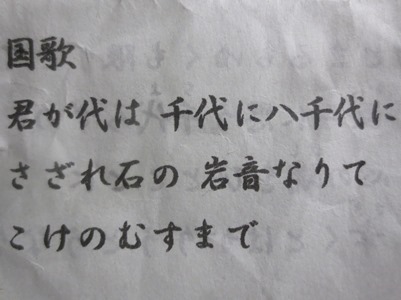 国歌
君が代は 千代に八千代に
さざれ石の 岩音なりて
こけのむすまで